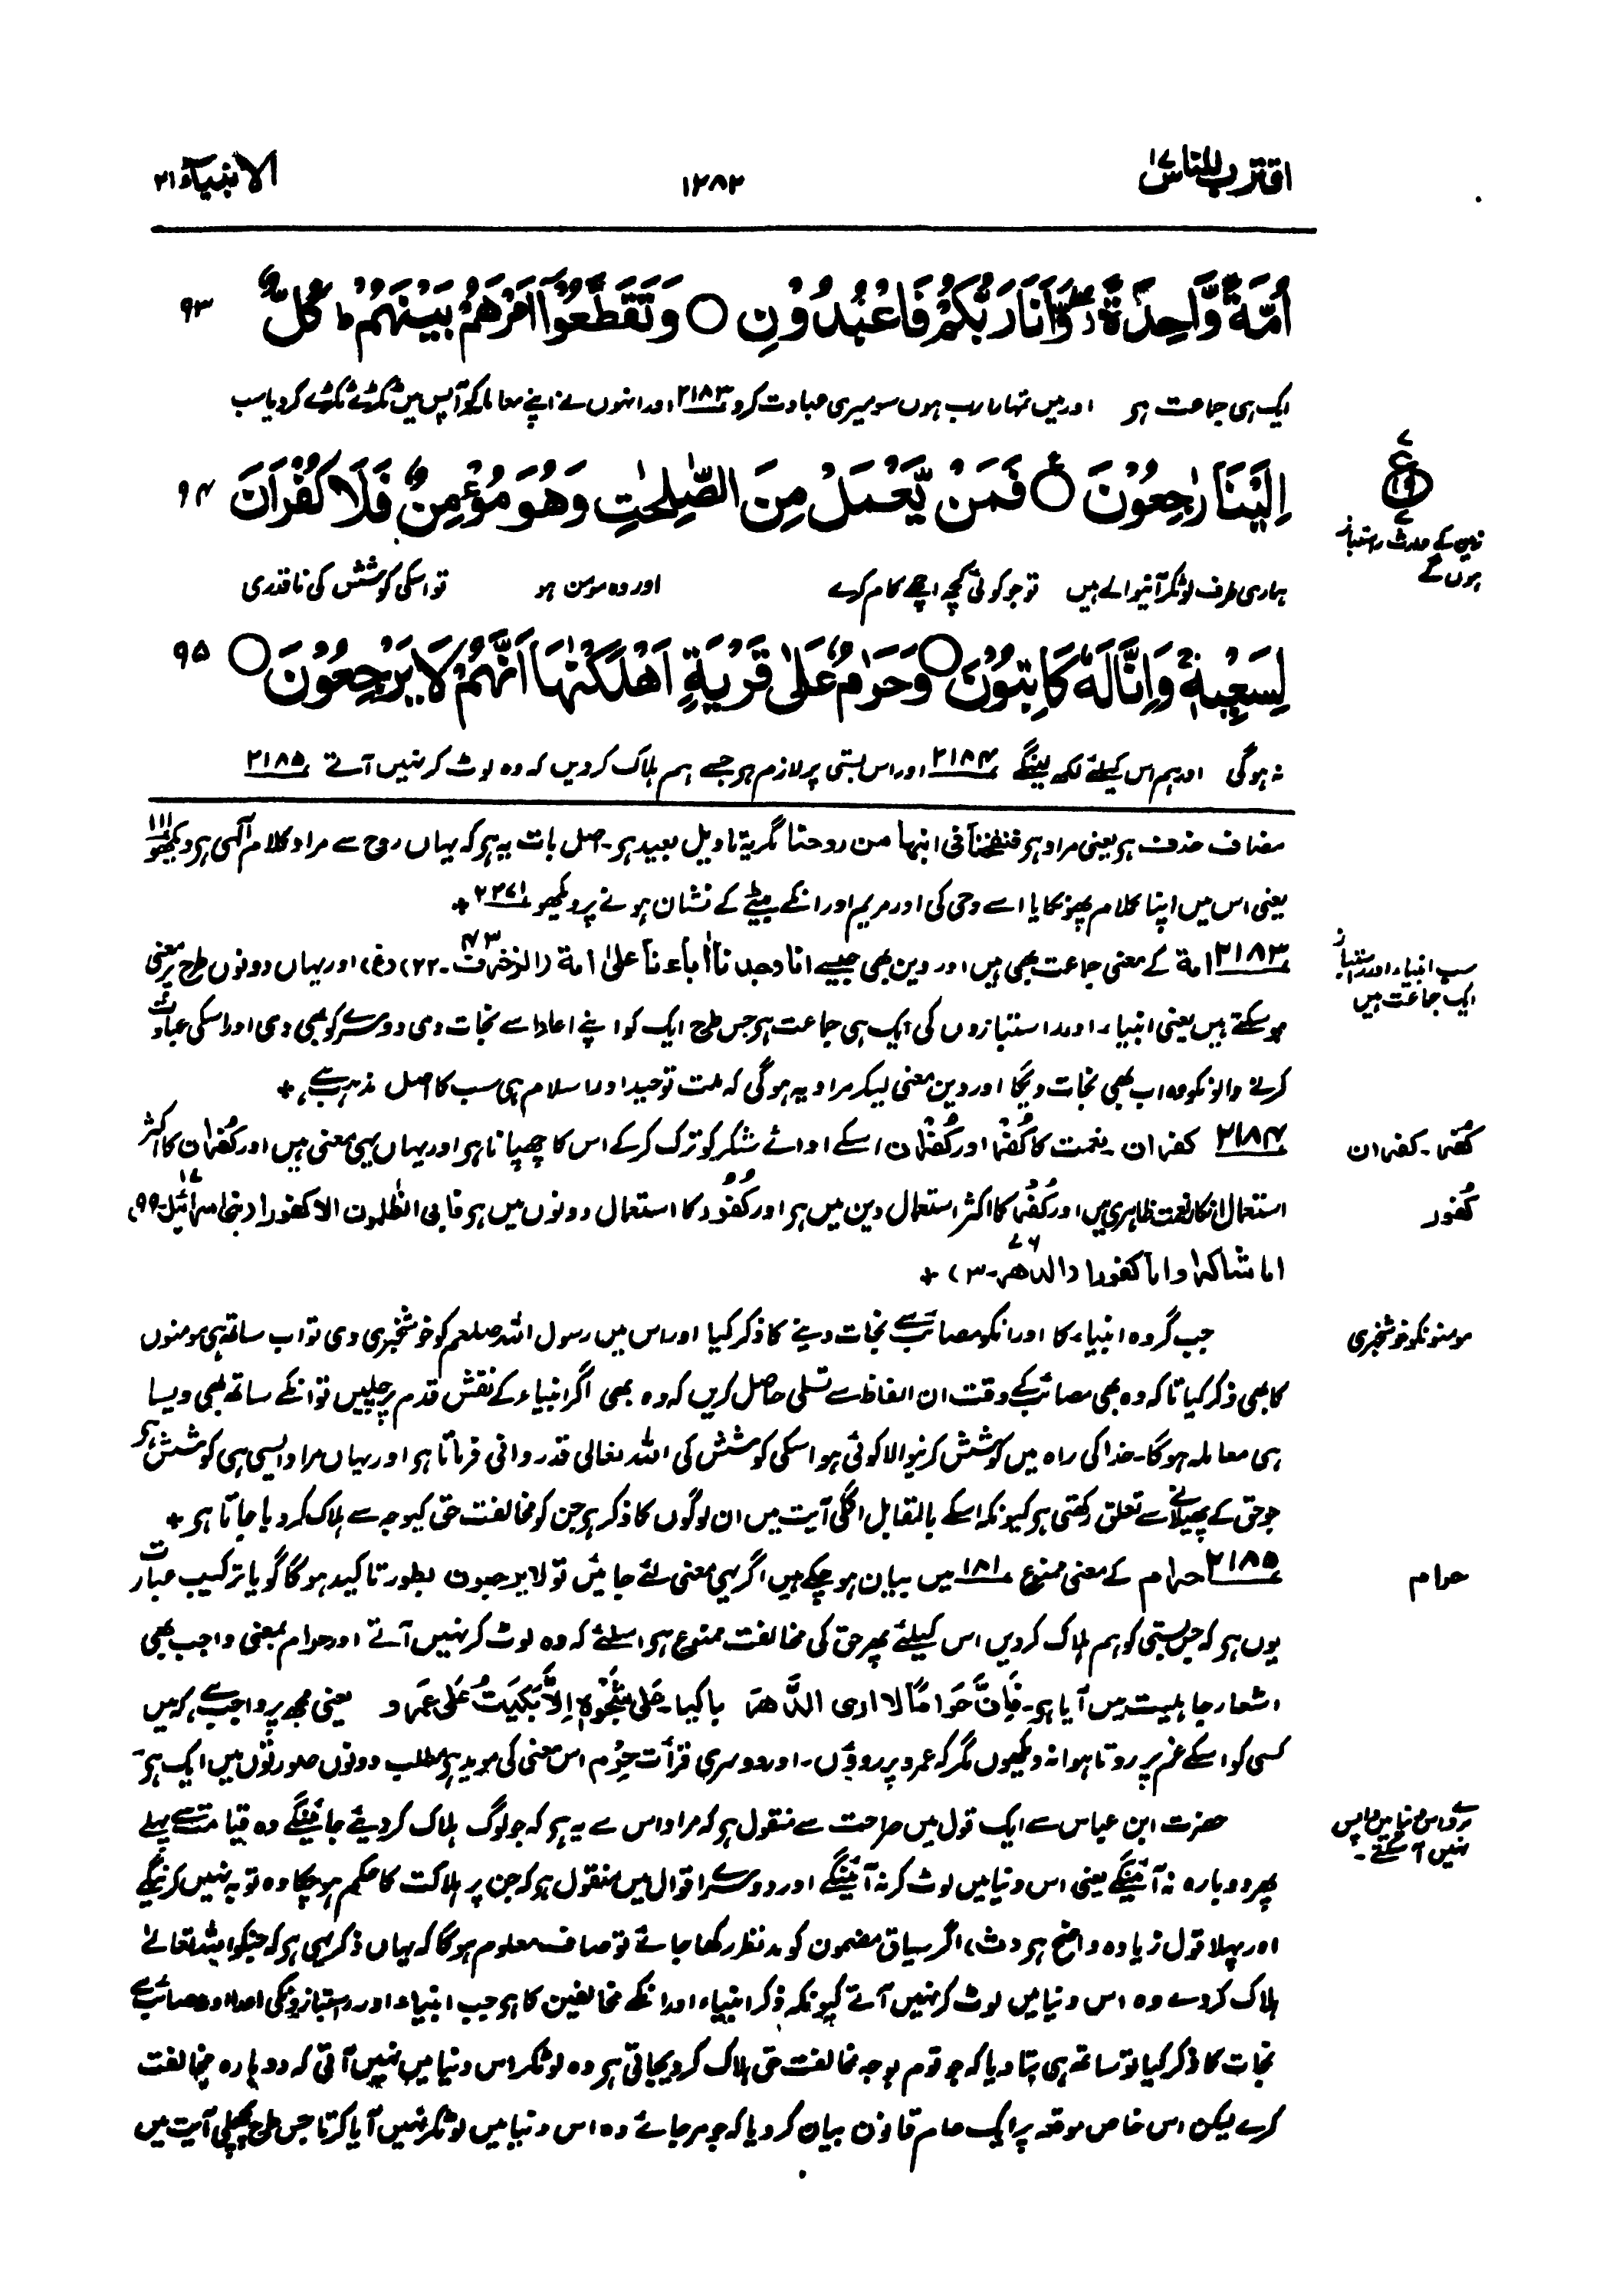 اقترب للناس ۱۷
۱۲۸۲
الانبیآء ۲۱
اُمَّةً وَّاحِدَةً ۖ وَّاَنَا رَبُّكُمْ فَاعْبُدُوْنِ ○ وَتَقَطَّعُوْٓا اَمْرَهُمْ بَيْنَهُمْ ؕ كُلٌّ ۹۳
ایک ہی جماعت ہر اور میں تمہارا رب ہوں سو میری عبادت کرو ۲۱۸۳ اور انہوں نے اپنے معاملہ کو آپس میں ٹکڑے ٹکڑے کر دیا سب
اِلَيْنَا رٰجِعُوْنَ ○ فَمَنْ يَّعْمَلْ مِنَ الصّٰلِحٰتِ وَهُوَ مُؤْمِنٌ فَلَا كُفْرَانَ ۹۴
ع
زمین کے وارث راستباز
ہوں گے
ہماری طرف لوٹکر آنیوالے ہیں تو جو کوئی کچھ اچھے کام کرے اور وہ مومن ہو تو اسکی کوشش کی ناقدری
لِسَعْيِهٖ ۚ وَاِنَّا لَهٗ كَاتِبُوْنَ ○ وَحَرٰمٌ عَلٰى قَرْيَةٍ اَهْلَكْنٰهَآ اَنَّهُمْ لَا يَرْجِعُوْنَ ○ ۹۵
نہ ہوگی اور ہم اس کیلئے لکھ لینگے ۲۱۸۴ اور اس بستی پر لازم ہر جسے ہم ہلاک کردیں کہ وہ لوٹ کر نہیں آتے ۲۱۸۵
مضاف حذف ہر یعنی مراد ہر فنفخنا فی ابنہا من روحنا مگر یہ تاویل بعید ہر۔ اصل بات یہ ہر کہ یہاں روح سے مراد کلام آلٰہی ہر دیکھو ۱۱۱
یعنی اس میں اپنا کلام پھونکا یا اسے وحی کی اور مریم اور انکے بیٹے کے نشان ہونے پر دیکھو ۲۲۷۱ +
۲۱۸۳ امة کے معنی جماعت بھی ہیں اور دین بھی جیسے انا وجدنا اٰباءنا علیٰ امة (الزخرف ۴۳-۲۲) (غ) اور یہاں دونوں طرح پر معنی
سب انبیاء اور راستباز
ایک جماعت ہیں
ہوسکتے ہیں یعنی انبیاء اور راستبازوں کی ایک ہی جماعت ہر جس طرح ایک کو اپنے اعدا سے نجات دی دوسرے کو بھی دی اور اسکی عبادت
کرنے والونکو وہ اب بھی نجات دیگا اور دین معنی لیکر مراد یہ ہوگی کہ ملت توحید اور اسلام ہی سب کا اصل مذہب ہے +
کُفر۔ کفران
۲۱۸۴ کفران۔ نعمت کا کُفر اور کُفران اسکے ادائے شکر کو ترک کرکے اس کا چھپانا ہر اور یہاں یہی معنی ہیں اور کُفران کا اکثر
کُفور
استعمال انکار نعمت ظاہری میں اور کُفر کا اکثر استعمال دین میں ہر اور کُفُور کا استعمال دونوں میں ہر فابی الظٰلمون الا کفورا (بنی اسرائیل ۱۷-۹۹)
اما شاکرا واما کفورا (الدھر ۷۶-۳) +
مومنونکو خوشخبری
جب گروہ انبیاء کا اور انکو مصائب سے نجات دینے کا ذکر کیا اور اس میں رسول اللہ صلعم کو خوشخبری دی تو اب ساتھ ہی مومنوں
کا بھی ذکر کیا تاکہ وہ بھی مصائب کے وقت ان الفاظ سے تسلی حاصل کریں کہ وہ بھی اگر انبیاء کے نقش قدم پر چلیں تو انکے ساتھ بھی ویسا
ہی معاملہ ہوگا۔ خدا کی راہ میں کوشش کرنیوالا کوئی ہو اسکی کوشش کی اللہ تعالی قدردانی فرماتا ہر اور یہاں مراد ایسی ہی کوشش ہر
جو حق کے پھیلانے سے تعلق رکھتی ہر کیونکہ اسکے بالمقابل اگلی آیت میں ان لوگوں کا ذکر ہر جن کو مخالفت حق کیوجہ سے ہلاک کردیا جاتا ہر +
حرام
۲۱۸۵ حرام کے معنی ممنوع ۱۸۱ میں بیان ہو چکے ہیں اگر یہی معنی لئے جائیں تو لا یرجعون بطور تاکید ہوگا گویا ترکیب عبارت
یوں ہر کہ جس بستی کو ہم ہلاک کردیں اس کیلئے پھر حق کی مخالفت ممنوع ہر اسلئے کہ وہ لوٹ کر نہیں آتے اور حرام بمعنی واجب بھی
اشعار جاہلیت میں آیا ہر۔ فَاِنَّ حَرَامًا لا اری الدَّهرَ باکیا۔ عَلیٰ شَجْوِہٖ اِلَّا بَکَیتُ عَلیٰ عَمرو یعنی مجھ پر واجب ہے کہ میں
کسی کو اسکے غم پر روتا ہوا نہ دیکھوں مگر کہ عمرو پر روؤں۔ اور دوسری قرأت حِرْم اس معنی کی موید ہر مطلب دونوں صورتوں میں ایک ہر
مردے اس دنیا میں واپس
نہیں آسکتے۔
حضرت ابن عباس سے ایک قول میں صراحت سے منقول ہر کہ مراد اس سے یہ ہر کہ جو لوگ ہلاک کردیئے جائینگے وہ قیامت سے پہلے
پھر دوبارہ نہ آئینگے یعنی اس دنیا میں لوٹ کر نہ آئینگے اور دوسرے اقوال میں منقول ہر کہ جن پر ہلاکت کا حکم ہوچکا وہ توبہ نہیں کرینگے
اور پہلا قول زیادہ واضح ہر (ث)، اگر سیاق مضمون کو مدنظر رکھا جائے تو صاف معلوم ہوگا کہ یہاں ذکر یہی ہر کہ جنکو اللہ تعالیٰ
ہلاک کردے وہ اس دنیا میں لوٹ کر نہیں آتے کیونکہ ذکر انبیاء اور انکے مخالفین کا ہر جب انبیاء اور راستبازونکی اعدا اور مصائب سے
نجات کا ذکر کیا تو ساتھ ہی بتا دیا کہ جو قوم بوجہ مخالفت حق ہلاک کردیجاتی ہر وہ لوٹکر اس دنیا میں نہیں آتی کہ دوبارہ مخالفت
کرے لیکن اس خاص موقعہ پر ایک عام قانون بیان کردیا کہ جو مر جائے وہ اس دنیا میں لوٹکر نہیں آیا کرتا جس طرح پچھلی آیت میں